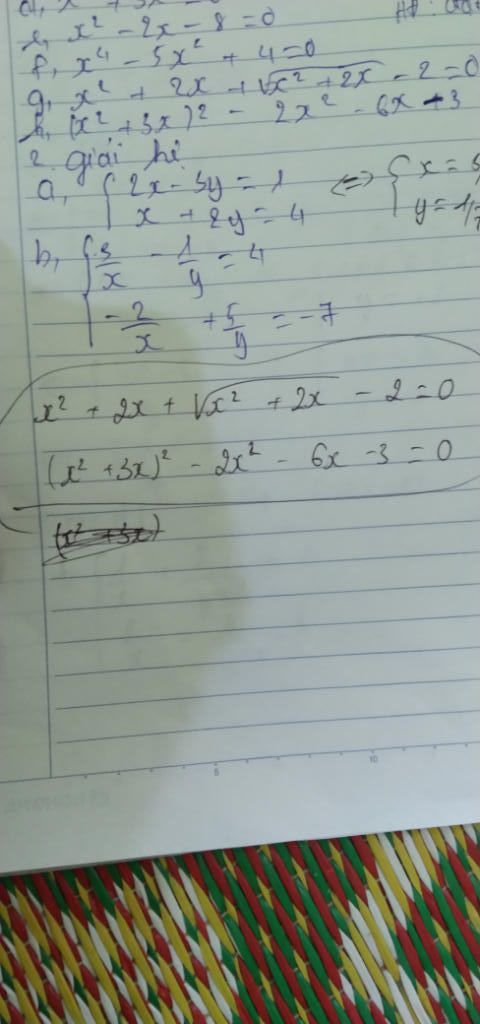 e, x² - 2x - 8 = 0
f, x⁴ - 5x² + 4 = 0
g, x² + 2x + √(x² + 2x) - 2 = 0
h, (x² + 3x)² - 2x² - 6x - 3
2. giải hệ
a, { 2x - 3y = 1 ⇔ { x =
x + 2y = 4 y = 1
b, { 3/x - 1/y = 4
-2/x + 5/y = -7
x² + 2x + √(x² + 2x) - 2 = 0
(x² + 3x)² - 2x² - 6x - 3 = 0
(x² + 3x)
5 10